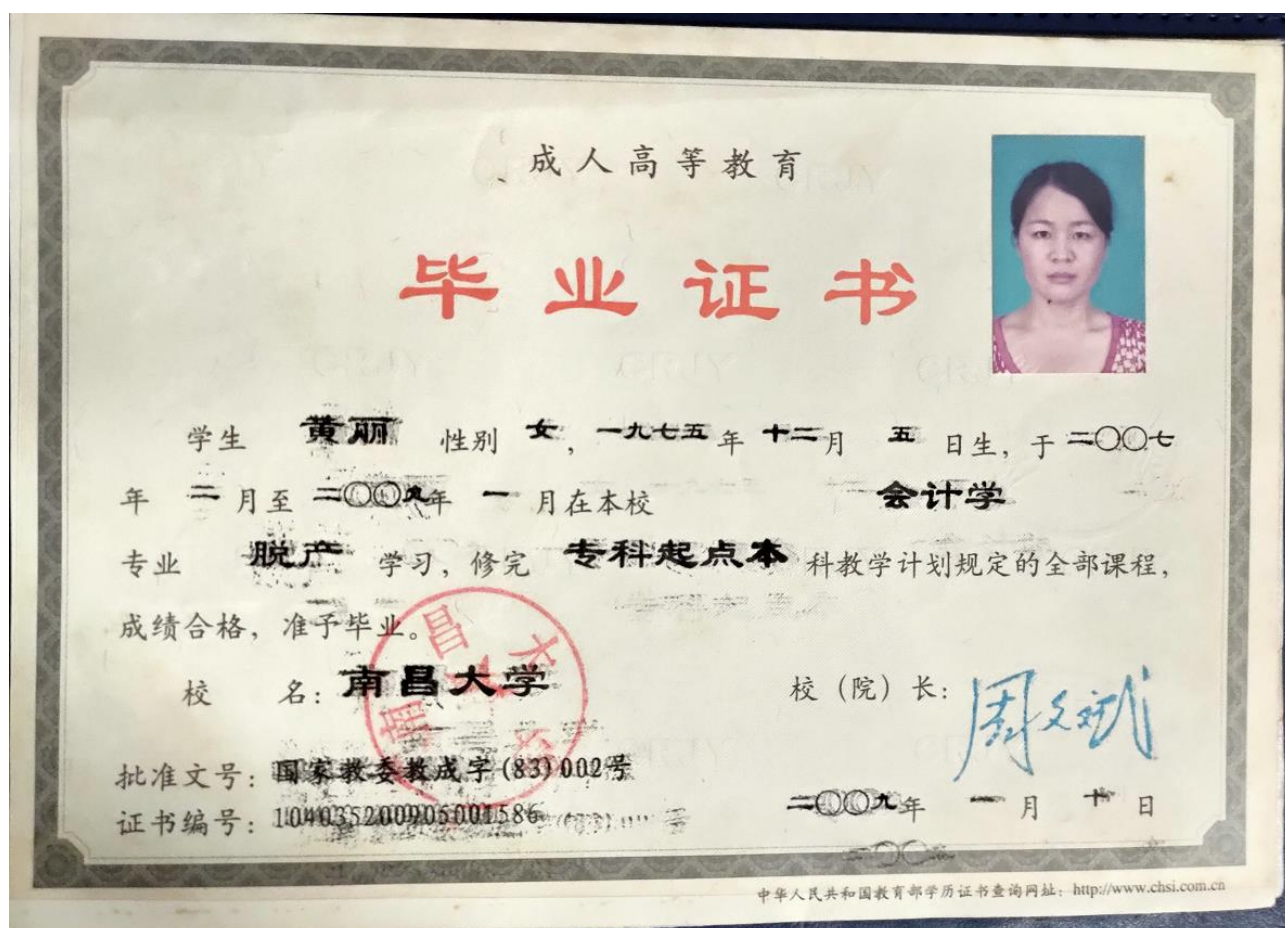 成人高等教育
毕业证书
学生 黄丽 性别 女，一九七五年 十二月 五 日生，于二〇〇七
年 二月至二〇〇九年 一 月在本校 会计学
专业 脱产 学习，修完 专科起点本 科教学计划规定的全部课程，
成绩合格，准予毕业。
校 名：南昌大学
校（院）长：周文斌
批准文号：国家教委教成字(83)002号
证书编号：104035200905001586
二〇〇九年 一月 十日
中华人民共和国教育部学历证书查询网址：http://www.chsi.com.cn
南昌大学